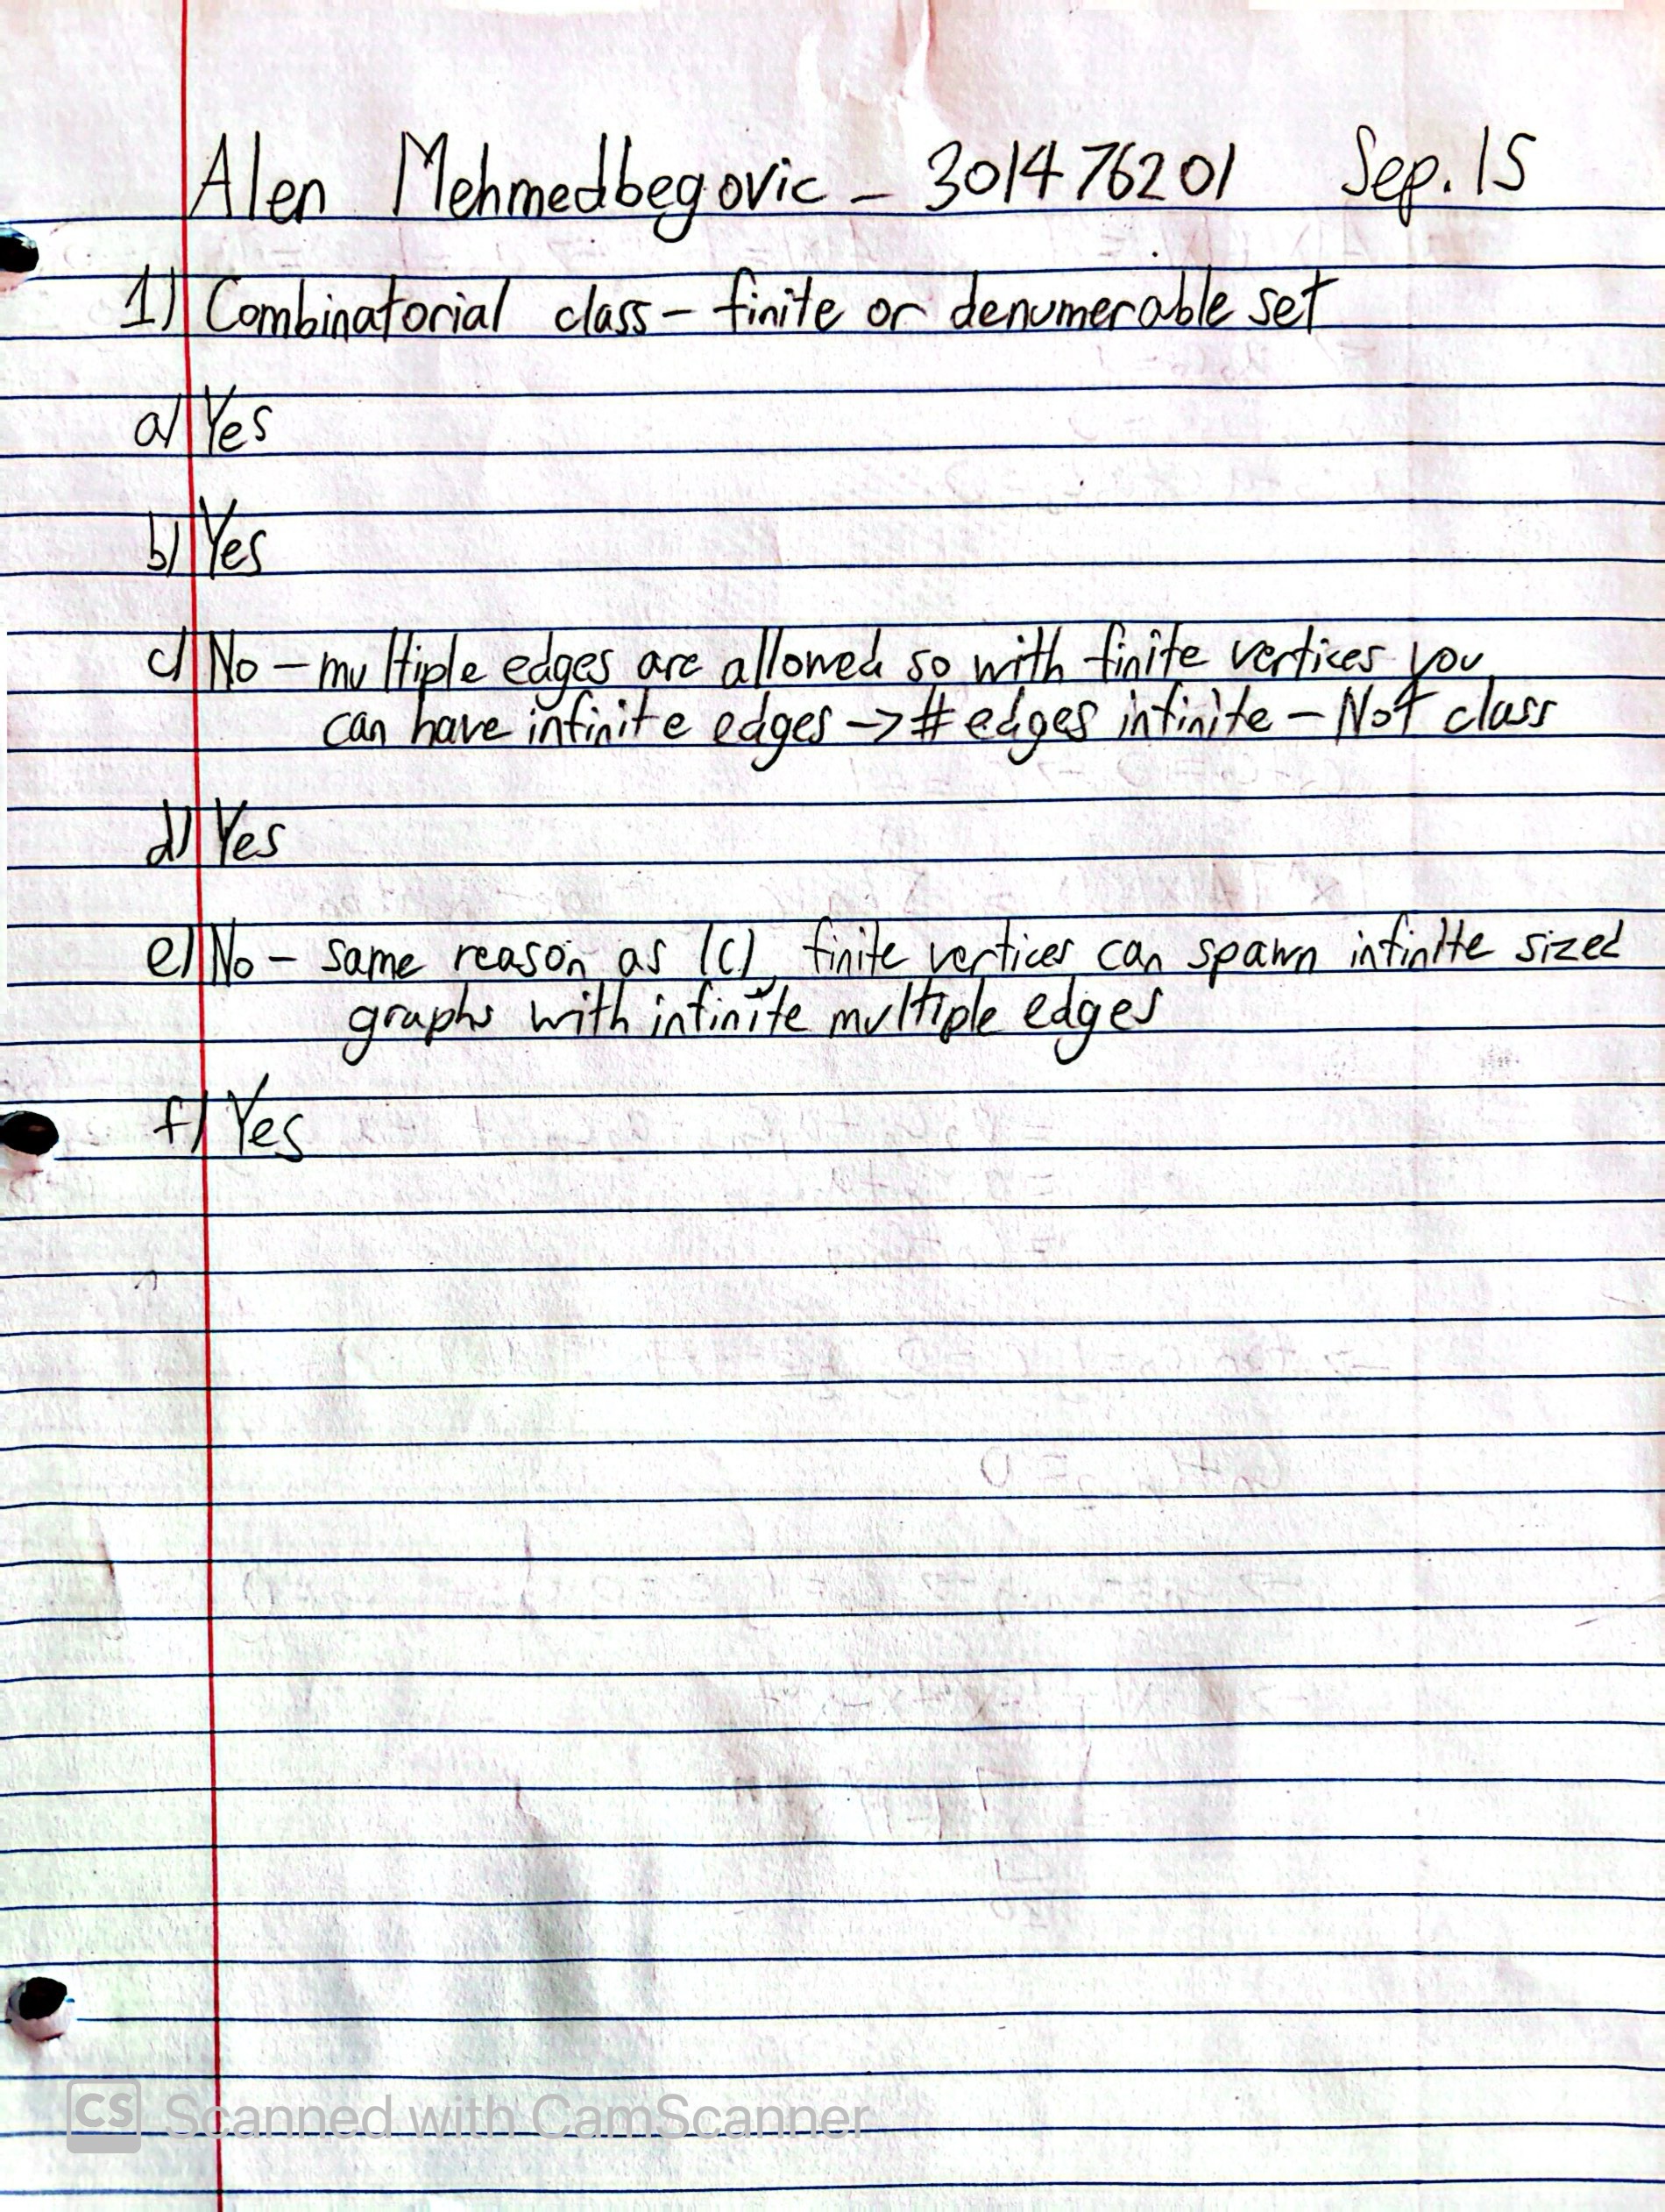 Alen Mehmedbegovic - 301476201 Sep. 15
1) Combinatorial class - finite or denumerable set
a) Yes
b) Yes
c) No - multiple edges are allowed so with finite vertices you
can have infinite edges -> # edges infinite - Not class
d) Yes
e) No - same reason as (c), finite vertices can spawn infinite sized
graphs with infinite multiple edges
f) Yes
CS Scanned with CamScanner